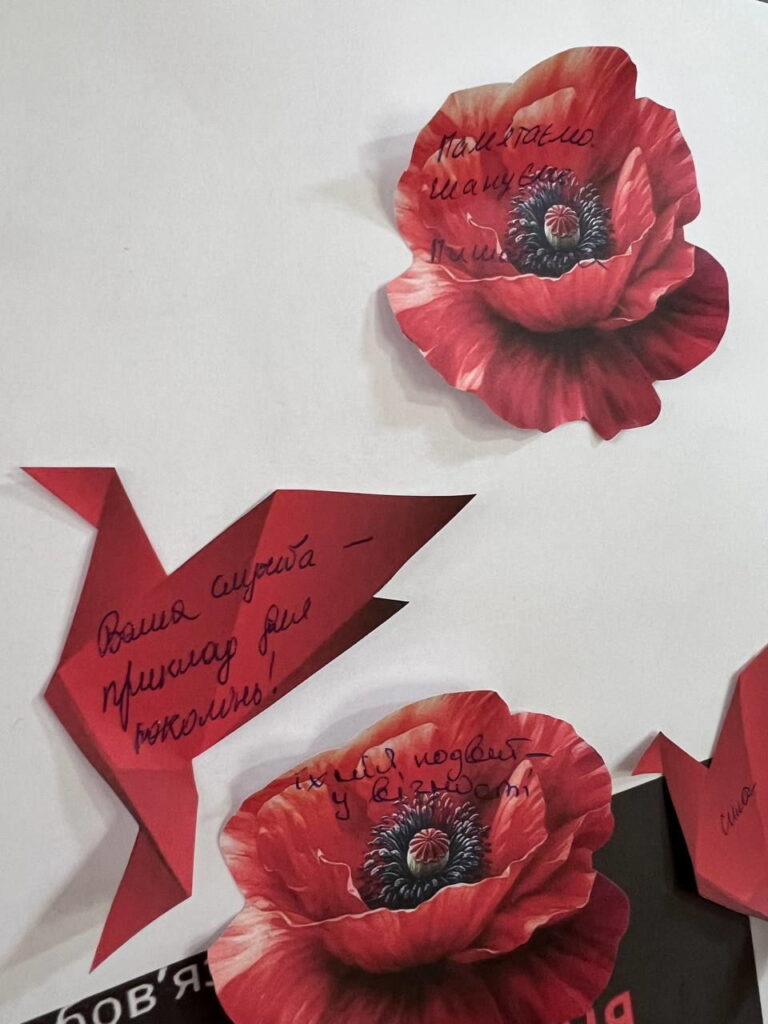 Пам'ятаємо.
шануємо
Пишаємося
Ваша служба –
приклад для
поколінь!
їх ім'я подвиг –
у вічності
сила
бов'я